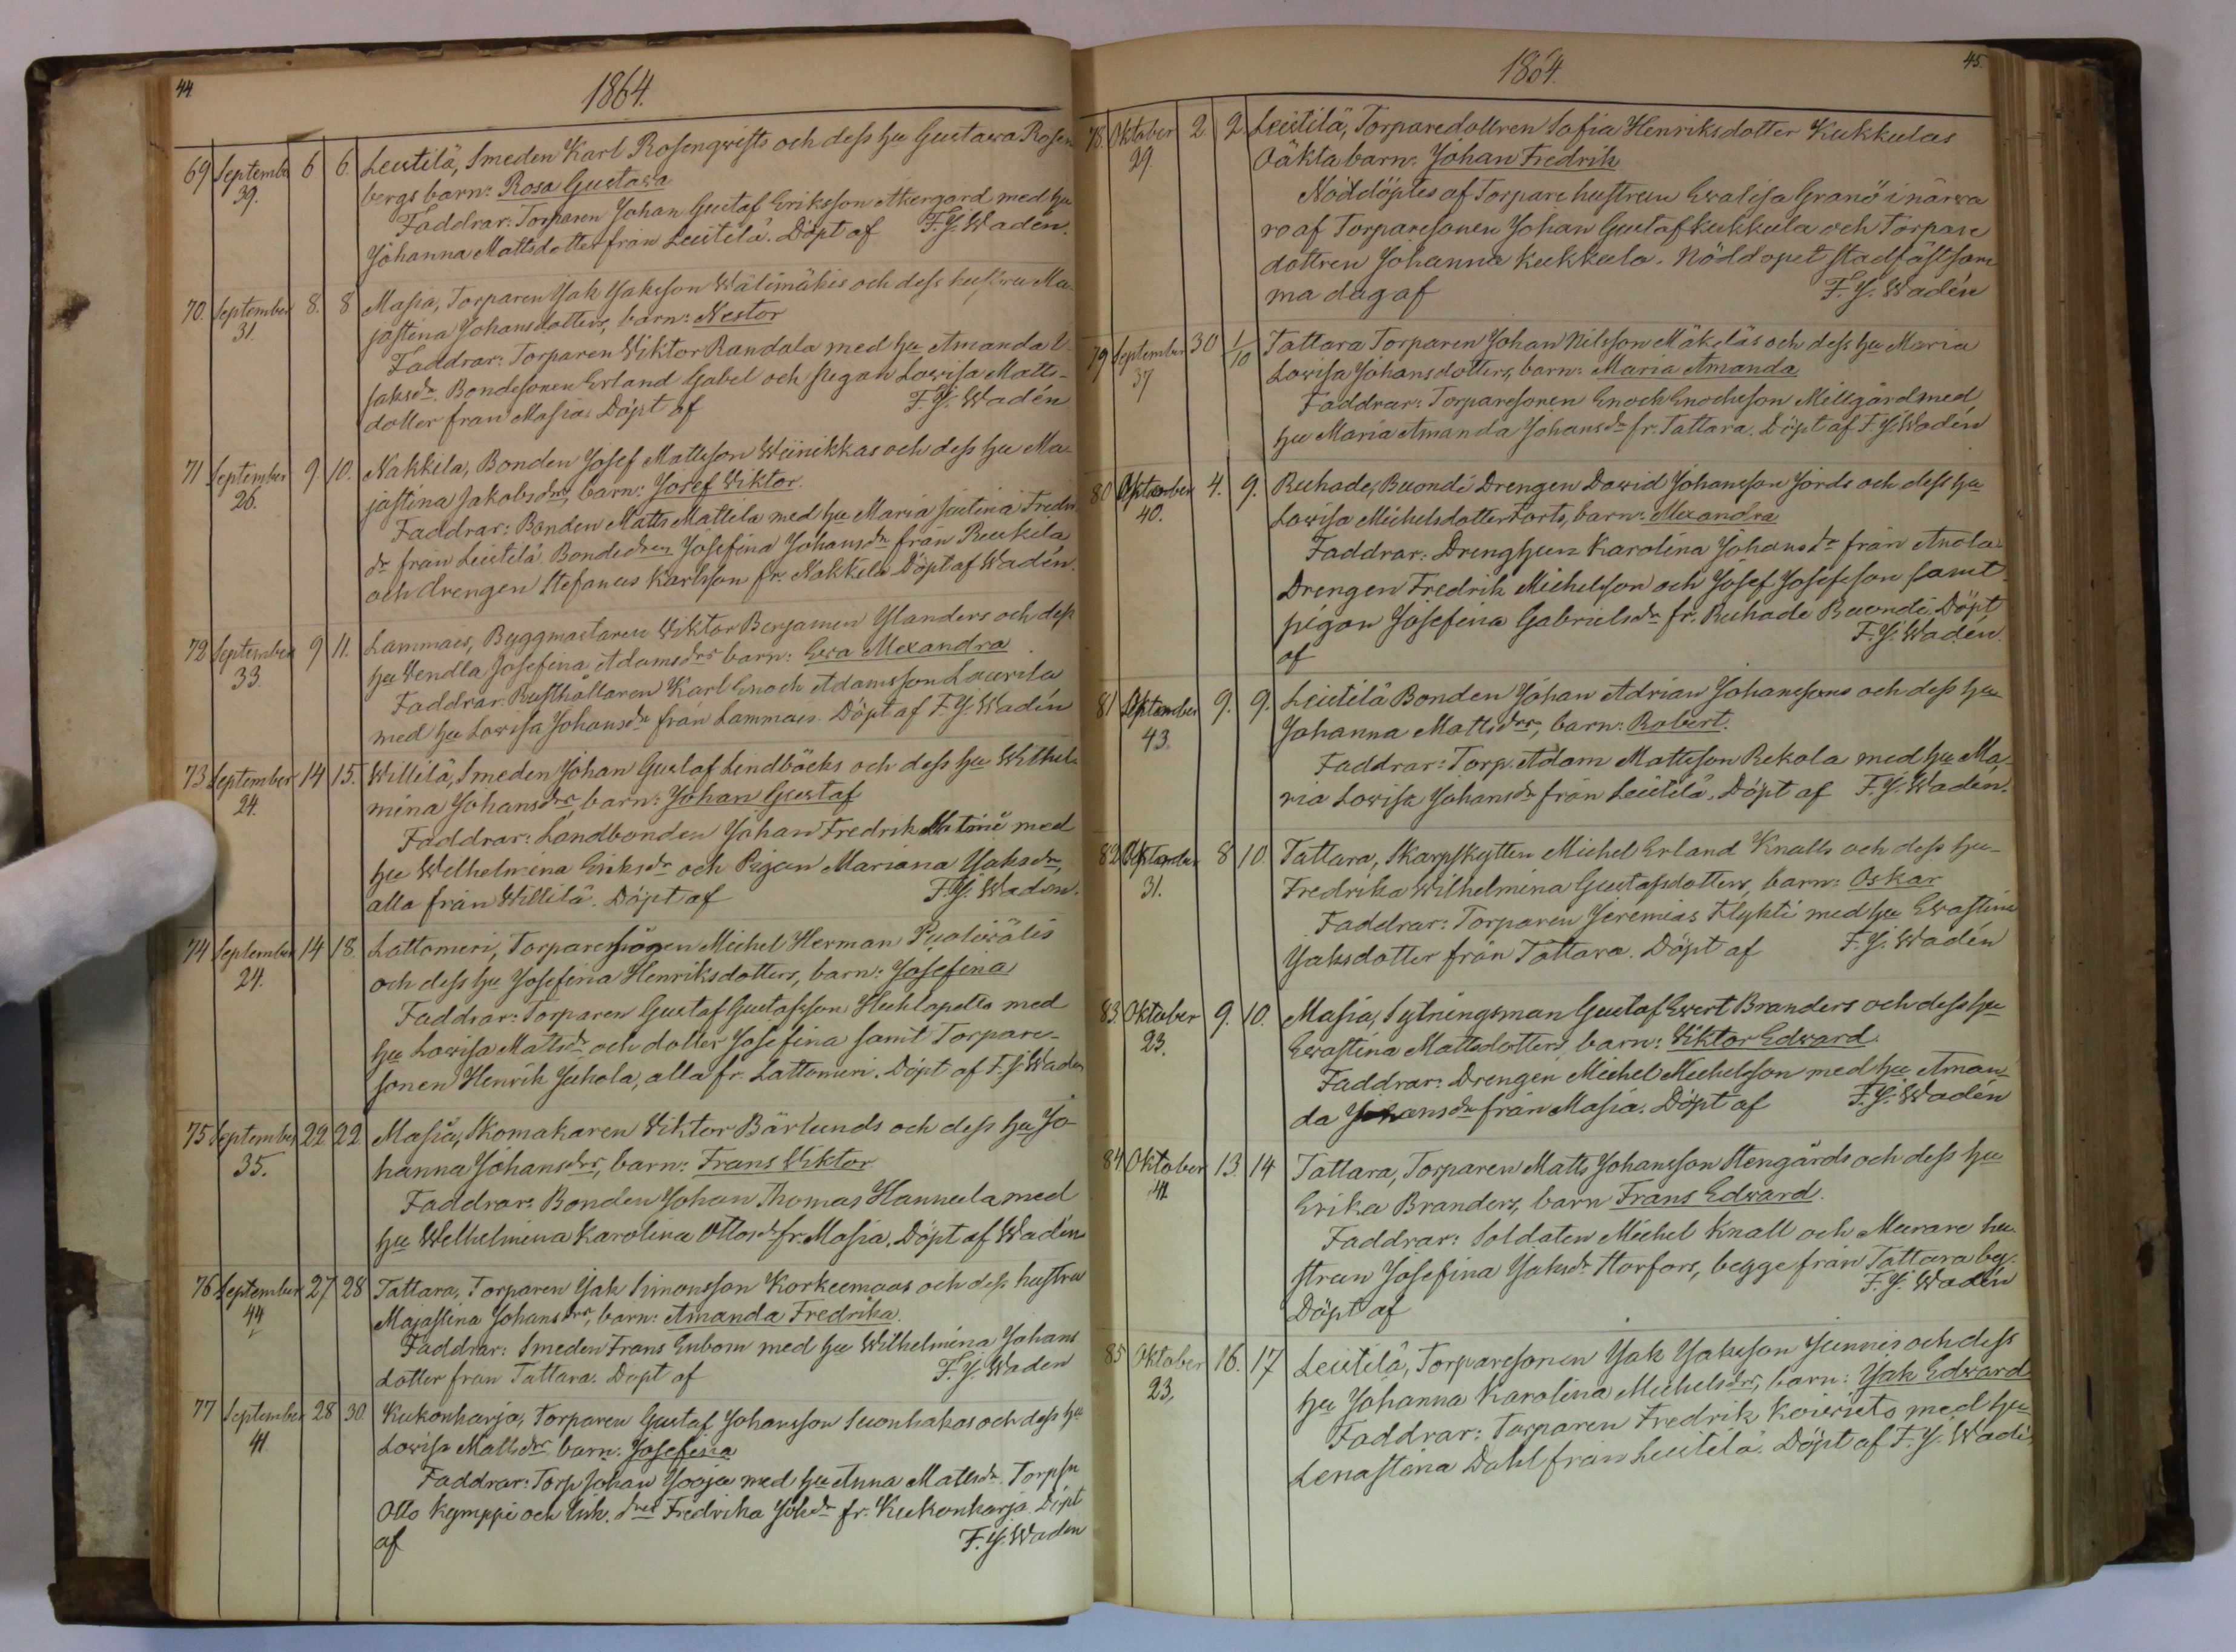 44
1864.
69 September 6 6. Leistilä, Smeden Karl Rosenqwists och dess hu Gustawa Rosen
39. bergs barn: Rosa Gustawa
Faddrar: Torparen Johan Gustaf Eriksson Akergord med hu
Johanna Mattsdotter från Leistilä. Döpt af F. J. Wadén.
70. September 8. 8 Masia, Torparen Jak Jaksson Wälimäkis och dess hustru Ma-
31. jastina Johansdotters, barn: Nestor
Faddrar: Torparen Wiktor Randala med hu Amanda I-
saksdr. Bondesonen Erland Gabel och pigan Lowisa Matts-
dotter från Masia. Döpt af F. J. Wadén
71 September 9 10. Nakkila, Bonden Josef Matsson Wiinikkas och dess hu Ma-
26. jastina Jakobsdrs, barn: Josef Wiktor.
Faddrar: Bonden Matts Mattila med hu Maria Justina Fredr.
dr från Leistilä. Bondedren Josefina Johansdr från Ruskila
och drengen Stefanus Karlsson fr. Nakkila Döpt af Wadén.
72 September 9 11. Lammais, Byggmastaren Wiktor Benjamin Ylanders och dess
33. hu Wendla Josefina Adamsdrs barn: Ewa Alexandra
Faddrar: Rusthållaren Karl Enoch Adamsson Laurila
med hu Lowisa Johansdr från Lammais. Döpt af F. J. Wadén
73 September 14 15. Willilä, Smeden Johan Gustaf Lindbäcks och dess hu Wilhel-
24. mina Johansdrs barn: Johan Gustaf
Faddrar: Landbonden Johan Fredrik med
hu Wilhelmina Eriksdr och Pigan Mariana Jaksdr,
alla från Willilä. Döpt af F. J. Wadén.
74 September 14 18. Lattomeri, Torparesonen Michel Herman Puoliwälis
24. och dess hu Josefina Henriksdotters, barn: Josefina
Faddrar: Torparen Gustaf Gustafsson med
hu Lowisa Matsdr och dotter Josefina samt Torpare-
sonen Henrik Juhola, alla fr. Lattomeri. Döpt af F. J. Wadén
75 September 22 22. Masia, Skomakaren Wiktor Bärlunds och dess hu Jo-
35. hanna Johansdrs, barn: Frans Wiktor
Faddrar: Bonden Johan Thomas Hannula med
hu Wilhelmina Karolina Ottosdr fr. Masia. Döpt af Wadén
76 September 27 28 Tattara, Torparen Jak Simonsson Korkeemaas och dess hustru
44 Majastina Johansdrs, barn: Amanda Fredrika.
Faddrar: Smeden Frans Enbom med hu Wilhelmina Johans
dotter från Tattara. Döpt af F. J. Wadén
77 September 28 30. Kukonharja, Torparen Gustaf Johansson Suonhakas och dess hu
41. Lowisa Mattsdrs barn: Josefina
Faddrar: Torp Johan Yooja med hu Anna Mattsdr. Torpsn
Otto Kymppi och Inh. dren Fredrika Johdr fr. Kukonharja. Döpt
af F. J. Wadén
45.
1864.
78. Oktober 2. 2. Leistilä, Torparedottren Sofia Henriksdotter Kukkulas
29. Oäkta barn: Johan Fredrik
Nöddöptes af Torpare hustrun Ewalisa Granö i närwa
ro af Torparesonen Johan Gustaf Kukkula och Torpare
dottren Johanna Kukkula. Nöddopet stadfäst sam
ma dag af F. J. Wadén
79 September 30 1/10 Tattara Torparen Johan Nilsson Mäkeläs och dess hu Maria
37 Lowisa Johansdotters, barn: Maria Amanda
Faddrar: Torparesonen Enoch Enochsson Millgård med
hu Maria Amanda Johansdr fr. Tattara. Döpt af F. J. Wadén
80 Oktober 4. 9. Ruhade, Buondi Drengen Dawid Johansson Jords och dess hu
40. Lowisa Michelsdotter Torts, barn: Alexandra
Faddrar: Drenghun Karolina Johansdr från Anola.
Drengen Fredrik Michelsson och Josef Josefsson samt
pigan Josefina Gabrielsdr fr. Ruhade Buondi. Döpt
af F. J. Wadén.
81 Oktober 9. 9. Leistilä Bonden Johan Adrian Johanssons och dess hu
43. Johanna Mattsdrs, barn: Robert.
Faddrar: Torp. Adam Mattsson Rekola med hu Ma-
ria Lowisa Johansdr från Leistilä. Döpt af F. J. Wadén.
82 Oktober 8 10 Tattara, Skarpskytten Michel Erland Knalls och dess hu
31. Fredrika Wilhelmina Gustafsdotters, barn: Oskar
Faddrar: Torparen Jeremias Flykti med hu Ewastina
Jaksdotter från Tattara. Döpt af F. J. Wadén
83. Oktober 9. 10. Masia, Sytningsman Gustaf Ewert Branders och dess hu
23. Ewastina Mattsdotters barn: Wiktor Edward.
Faddrar: Drengen Michel Michelsson med hu Aman-
da Johansdr från Masia. Döpt af F. J. Wadén
84 Oktober 13. 14 Tattara, Torparen Matts Johansson Stengårds och dess hu
41 Erika Branders, barn Frans Edward.
Faddrar: Soldaten Michel Knall och Murare hu-
strun Josefina Jaksdr Horfors, begge från Tattara by.
Döpt af F. J. Wadén
85 Oktober 16. 17 Leistilä, Torparesonen Jak Jaksson Junnis och dess
23, hu Johanna Karolina Michelsdrs, barn: Jak Edward
Faddrar: Torparen Fredrik Koiwisto med hu
Lenastina Dahl från Leistilä. Döpt af F. J. Wadé